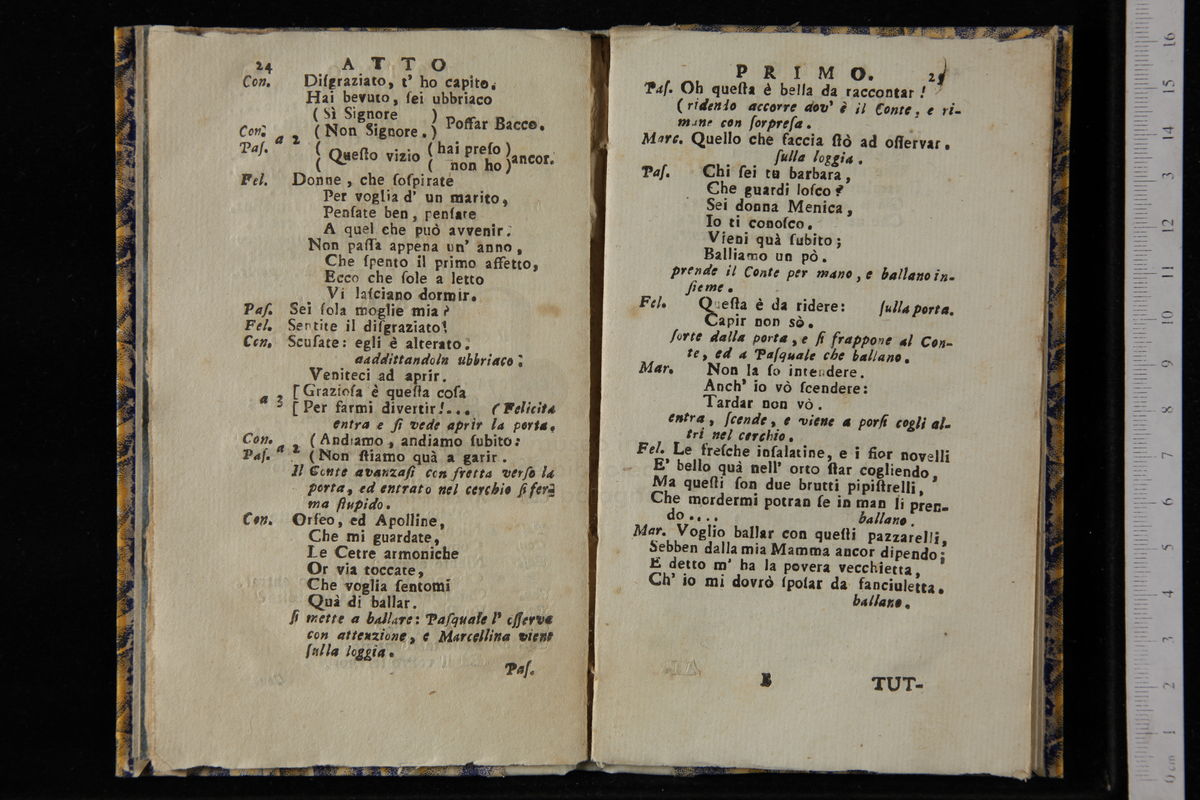 24 ATTO
Con. Diſgraziato, t' ho capito.
Hai bevuto, ſei ubbriaco
(Sì Signore )
Con. a 2 (Non Signore.) Poſſar Bacco.
Paſ. ( Queſto vizio (hai preſo ) ancor.
( ( non ho)
Fel. Donne, che ſoſpirate
Per voglia d' un marito,
Penſate ben, penſate
A quel che può avvenir.
Non paſſa appena un' anno,
Che ſpento il primo affetto,
Ecco che ſole a letto
Vi laſciano dormir.
Paſ. Sei ſola moglie mia?
Fel. Sentite il diſgraziato!
Con. Scuſate: egli è alterato.
aaddittandoln ubbriaco.
Veniteci ad aprir.
[Grazioſa è queſta coſa
a 3 [Per farmi divertir!... (Felicita
entra e ſi vede aprir la porta.
Con. a 2 (Andiamo, andiamo ſubito:
Paſ. (Non ſtiamo quà a garir.
Il Conte avanzaſi con fretta verſo la
porta, ed entrato nel cerchio ſi fer-
ma ſtupido.
Con. Orfeo, ed Apolline,
Che mi guardate,
Le Cetre armoniche
Or via toccate,
Che voglia ſentomi
Quà di ballar.
ſi mette a ballare: Paſquale l' oſſerva
con attenzione, e Marcellina viene
ſulla loggia.
Paſ.
PRIMO. 25
Paſ. Oh queſta è bella da raccontar!
(ridendo accorre dov' è il Conte, e ri-
mane con ſorpreſa.
Marc. Quello che faccia ſtò ad oſſervar.
ſulla loggia.
Paſ. Chi ſei tu barbara,
Che guardi loſco?
Sei donna Menica,
Io ti conoſco.
Vieni quà ſubito;
Balliamo un pò.
prende il Conte per mano, e ballano in-
ſieme.
Fel. Queſta è da ridere: ſulla porta.
Capir non sò.
ſorte dalla porta, e ſi frappone al Con-
te, ed a Paſquale che ballano.
Mar. Non la ſo intendere.
Anch' io vò ſcendere:
Tardar non vò.
entra, ſcende, e viene a porſi cogli al-
tri nel cerchio.
Fel. Le freſche inſalatine, e i fior novelli
E' bello quà nell' orto ſtar cogliendo,
Ma queſti ſon due brutti pipiſtrelli,
Che mordermi potran ſe in man li pren-
do.... ballano.
Mar. Voglio ballar con queſti pazzarelli,
Sebben dalla mia Mamma ancor dipendo;
E detto m' ha la povera vecchietta,
Ch' io mi dovrò ſpoſar da fanciuletta.
ballano.
B TUT-